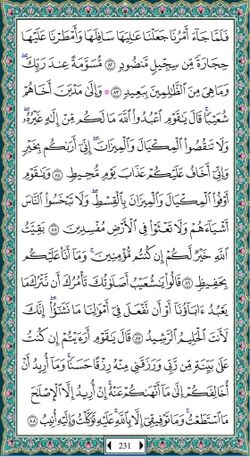 فَلَمَّا جَآءَ أَمْرُنَا جَعَلْنَا عَٰلِيَهَا سَافِلَهَا وَأَمْطَرْنَا عَلَيْهَا
حِجَارَةً مِّن سِجِّيلٍ مَّنضُودٍ ٨٢ مُّسَوَّمَةً عِندَ رَبِّكَۖ
وَمَا هِيَ مِنَ ٱلظَّٰلِمِينَ بِبَعِيدٍ ٨٣ ۞ وَإِلَىٰ مَدْيَنَ أَخَاهُمْ
شُعَيْبًاۚ قَالَ يَٰقَوْمِ ٱعْبُدُوا۟ ٱللَّهَ مَا لَكُم مِّنْ إِلَٰهٍ غَيْرُهُۥۖ
وَلَا تَنقُصُوا۟ ٱلْمِكْيَالَ وَٱلْمِيزَانَۚ إِنِّيٓ أَرَىٰكُم بِخَيْرٍ
وَإِنِّيٓ أَخَافُ عَلَيْكُمْ عَذَابَ يَوْمٍ مُّحِيطٍ ٨٤ وَيَٰقَوْمِ
أَوْفُوا۟ ٱلْمِكْيَالَ وَٱلْمِيزَانَ بِٱلْقِسْطِۖ وَلَا تَبْخَسُوا۟ ٱلنَّاسَ
أَشْيَآءَهُمْ وَلَا تَعْثَوْا۟ فِي ٱلْأَرْضِ مُفْسِدِينَ ٨٥ بَقِيَّتُ
ٱللَّهِ خَيْرٌ لَّكُمْ إِن كُنتُم مُّؤْمِنِينَۚ وَمَآ أَنَا۠ عَلَيْكُم
بِحَفِيظٍ ٨٦ قَالُوا۟ يَٰشُعَيْبُ أَصَلَوٰتُكَ تَأْمُرُكَ أَن نَّتْرُكَ مَا
يَعْبُدُ ءَابَآؤُنَآ أَوْ أَن نَّفْعَلَ فِيٓ أَمْوَٰلِنَا مَا نَشَٰٓؤُا۟ۖ إِنَّكَ
لَأَنتَ ٱلْحَلِيمُ ٱلرَّشِيدُ ٨٧ قَالَ يَٰقَوْمِ أَرَءَيْتُمْ إِن كُنتُ
عَلَىٰ بَيِّنَةٍ مِّن رَّبِّي وَرَزَقَنِي مِنْهُ رِزْقًا حَسَنًاۚ وَمَآ أُرِيدُ أَنْ
أُخَالِفَكُمْ إِلَىٰ مَآ أَنْهَىٰكُمْ عَنْهُۚ إِنْ أُرِيدُ إِلَّا ٱلْإِصْلَٰحَ
مَا ٱسْتَطَعْتُۚ وَمَا تَوْفِيقِيٓ إِلَّا بِٱللَّهِۚ عَلَيْهِ تَوَكَّلْتُ وَإِلَيْهِ أُنِيبُ ٨٨
231